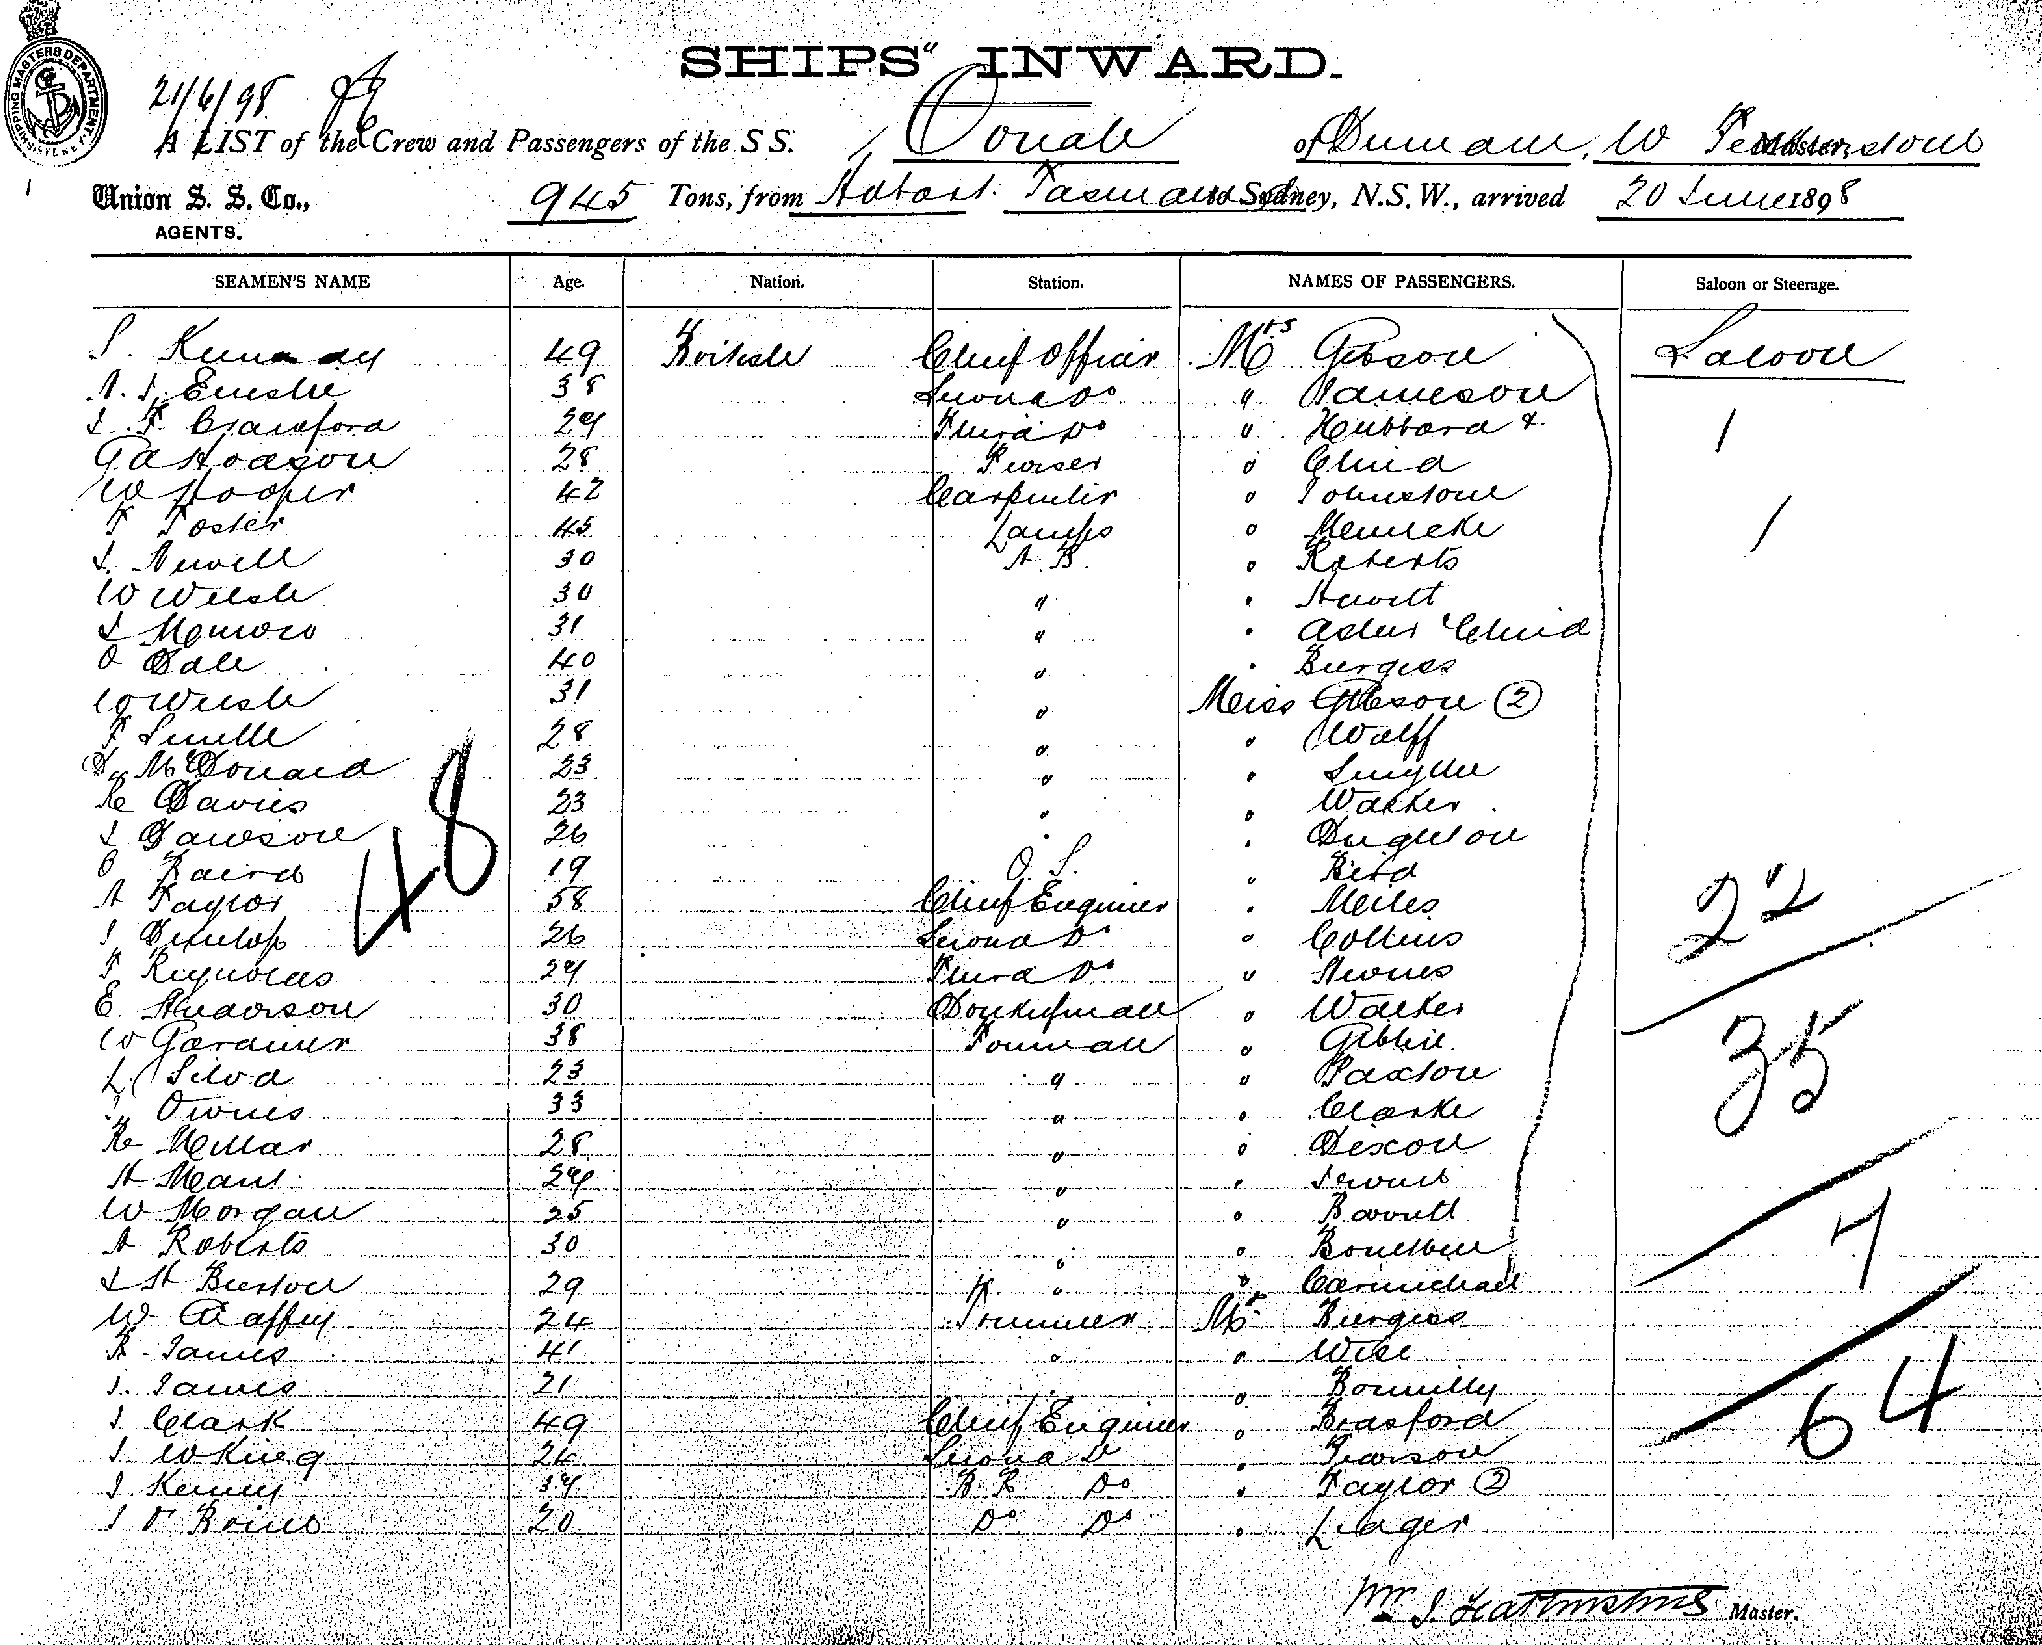 SHIPPING MASTERS DEPARTMENT
SHIPS" INWARD.
21/6/98
A LIST of the Crew and Passengers of the SS. Oonah of Dunedin, W Featherstone Master,
Union S. S. Co., 945 Tons, from Hobart Tasmania to Sydney, N.S.W., arrived 20 June 1898
AGENTS.
SEAMEN'S NAME Age. Nation. Station. NAMES OF PASSENGERS. Saloon or Steerage.
Kennedy 49 British Chief Officer Mrs Gibson Saloon
38 Second Do " Jameson
Crawford 29 Third Do " Hubbard & 1
G A Hodgson 28 Purser " Child
W Hooper 42 Carpenter " Johnstone
F Foster 45 Lamps " 1
Newell 30 A.B. " Roberts
W Welsh 30 " " Hewitt
Monroe 31 " " Child
O Dale 40 " " Burgess
W Welsh 31 " Miss Gibson 2
F 28 " " Wolff
McDonald 23 " "
R Davies 23 " " Walker
J Dawson 26 " "
Baird 19 O.S. " Bird
A Taylor 58 Chief Engineer " Miles 22
J Dunlop 26 Second Do " Collins
F Reynolds 29 Third Do "
E Anderson 30 Donkeyman " Walker
W Gardiner 38 Foreman " Gibbie 35
L Silva 23 " " Paxton
Owens 33 " " Clarke
R Millar 28 " " Dixon
H 29 " "
W Morgan 25 " " Barrett 7
A Roberts 30 " "
J H Burton 29 " " Carmichael
W Caffey 24 Trimmer Mr Burgess
James 41 " " Wise
J. James 21 "
J Clark 49 Chief Engineer " Bradford 64
J W King 26 Second Do " Pearson
J Kenny 39 Do " Taylor 2
20 Do Do "
48
Wm J. Featherstone Master.